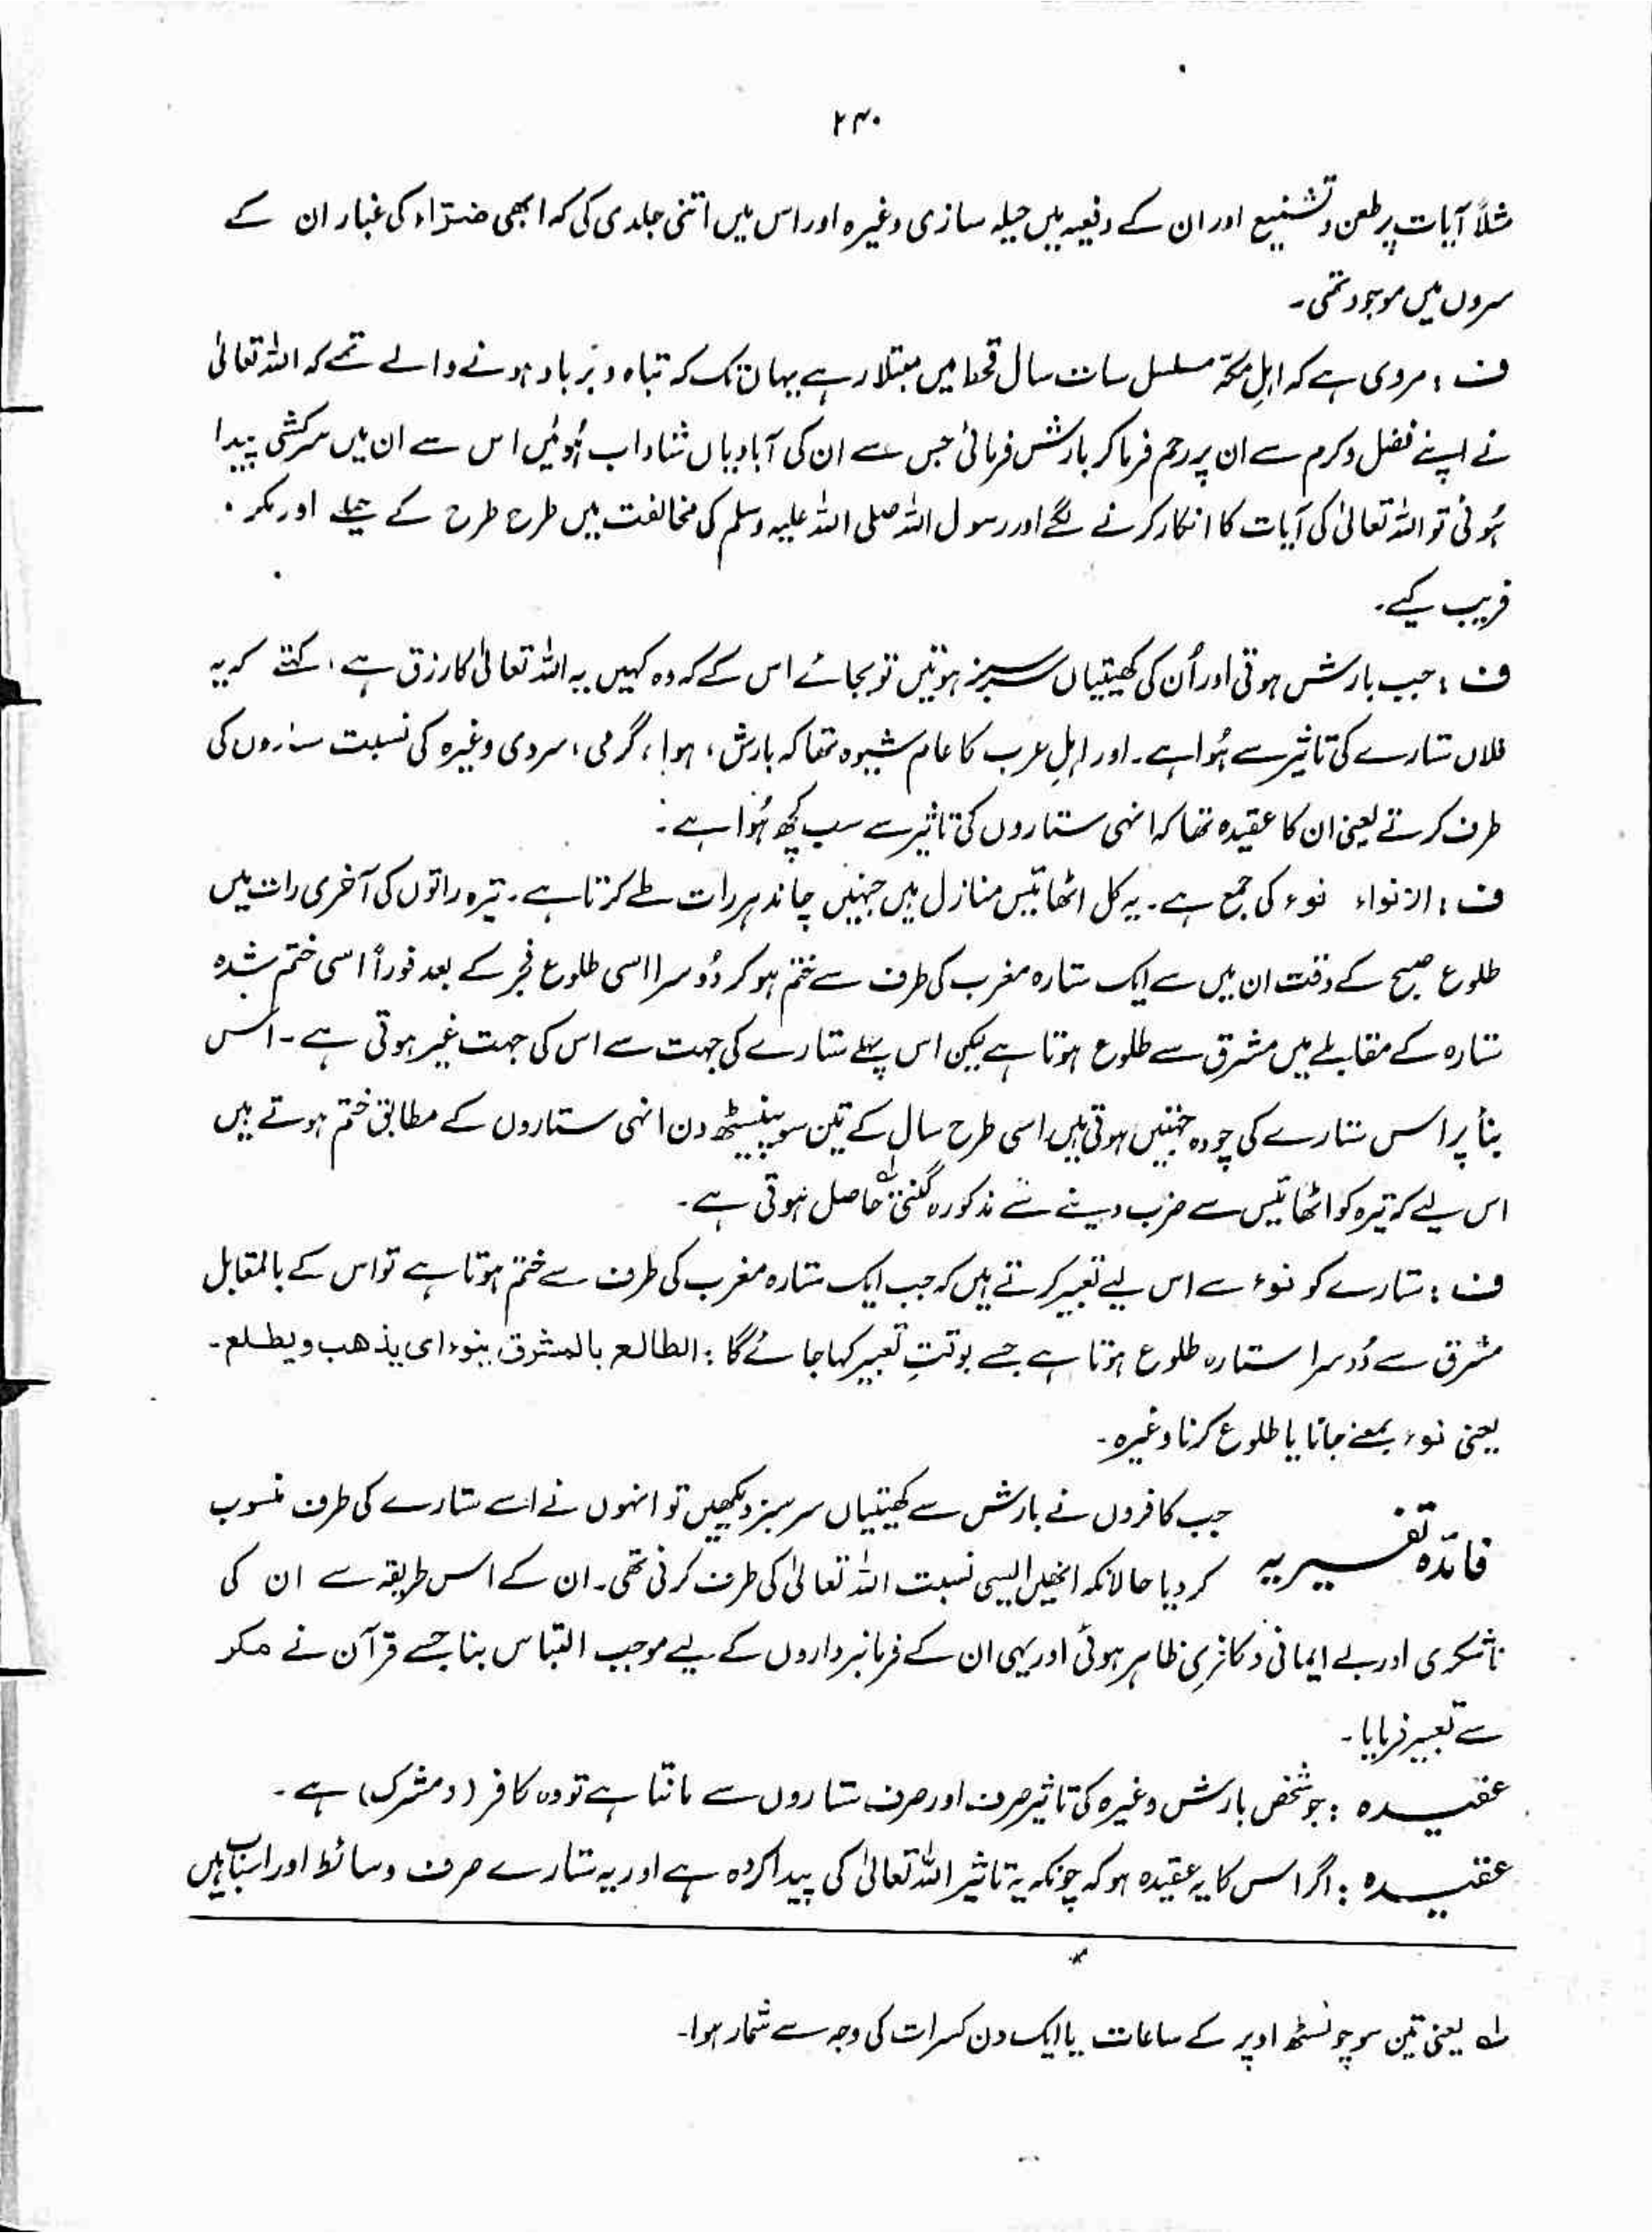 ۲۴۰
مثلاً آیات پر طعن و تشنیع اور ان کے دفیعہ میں حیلہ سازی وغیرہ اور اس میں اتنی جلدی کی کہ ابھی ضرّاء کی غبار ان کے
سروں میں موجود تھی۔
ف : مروی ہے کہ اہلِ مکّہ مسلسل سات سال قحط میں مبتلا رہے یہاں تک کہ تباہ و برباد ہونے والے تھے کہ اللہ تعالیٰ
نے اپنے فضل و کرم سے ان پر رحم فرما کر بارش فرمائی جس سے ان کی آبادیاں شاداب ہُوئیں اس سے ان میں سرکشی پیدا
ہُوئی تو اللہ تعالیٰ کی آیات کا انکار کرنے لگے اور رسول اللہ صلی اللہ علیہ وسلم کی مخالفت میں طرح طرح کے حیلے اور مکر
فریب کیے۔
ف : جب بارش ہوتی اور اُن کی کھیتیاں سرسبز ہوتیں تو بجائے اس کے کہ وہ کہیں یہ اللہ تعالیٰ کا رزق ہے، کہتے کہ یہ
فلاں ستارے کی تاثیر سے ہُوا ہے۔ اور اہلِ عرب کا عام شیوہ تھا کہ بارش، ہوا، گرمی، سردی وغیرہ کی نسبت ستاروں کی
طرف کرتے یعنی ان کا عقیدہ تھا کہ انہی ستاروں کی تاثیر سے سب کچھ ہُوا ہے۔
ف : الانواء نوء کی جمع ہے۔ یہ کل اٹھائیس منازل ہیں جنہیں چاند ہر رات طے کرتا ہے۔ تیرہ راتوں کی آخری رات میں
طلوع صبح کے وقت ان میں سے ایک ستارہ مغرب کی طرف سے ختم ہو کر دُوسرا اسی طلوع فجر کے بعد فوراً اسی ختم شدہ
ستارہ کے مقابلے میں مشرق سے طلوع ہوتا ہے لیکن اس پہلے ستارے کی جہت سے اس کی جہت غیر ہوتی ہے۔ اس
بنأ پر اس ستارے کی چودہ جہتیں ہوتی ہیں اسی طرح سال کے تین سو پینسٹھ دن انہی ستاروں کے مطابق ختم ہوتے ہیں
اس لیے کہ تیرہ کو اٹھائیس سے ضرب دینے سے مذکورہ گنتی لہ حاصل ہوتی ہے۔
ف : ستارے کو نوء سے اس لیے تعبیر کرتے ہیں کہ جب ایک ستارہ مغرب کی طرف سے ختم ہوتا ہے تو اس کے بالمقابل
مشرق سے دُوسرا ستارہ طلوع ہوتا ہے جسے بوقتِ تعبیر کہا جائے گا : الطالع بالمشرق ینوء ای یذھب ویطلع۔
یعنی نوء بمعنے جانا یا طلوع کرنا وغیرہ۔
فائدہ تفسیریہ جب کافروں نے بارش سے کھیتیاں سرسبز دیکھیں تو انہوں نے اسے ستارے کی طرف منسوب
کر دیا حالانکہ انھیں ایسی نسبت اللہ تعالیٰ کی طرف کرنی تھی۔ ان کے اس طریقہ سے ان کی
ناشکری اور بے ایمانی و کافری ظاہر ہوئی اور یہی ان کے فرمانبرداروں کے لیے موجب التباس بنا جسے قرآن نے مکر
سے تعبیر فرمایا۔
عقیدہ : جو شخص بارش وغیرہ کی تاثیر صرف اور صرف ستاروں سے مانتا ہے تو وہ کافر (ومشرک) ہے۔
عقیدہ : اگر اس کا یہ عقیدہ ہو کہ چونکہ یہ تاثیر اللہ تعالیٰ کی پیدا کردہ ہے اور یہ ستارے صرف وسائط اور اسباب ہیں
لہ یعنی تین سو چونسٹھ اوپر کے ساعات یا ایک دن کسرات کی وجہ سے شمار ہوا۔